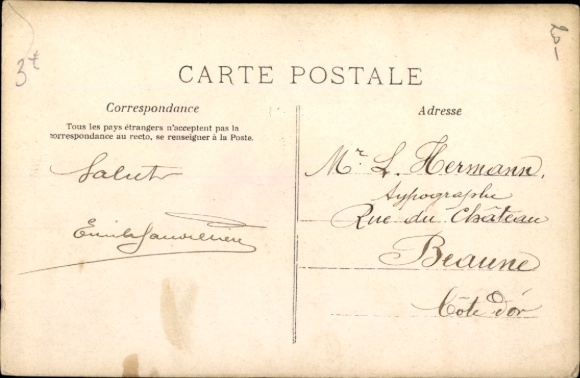 3t
20-
CARTE POSTALE
Correspondance
Tous les pays étrangers n'acceptent pas la
correspondance au recto, se renseigner à la Poste.
Saluts
Adresse
Mr. L. Hermann,
typographe
Rue du Château
Beaune
Côte d'or